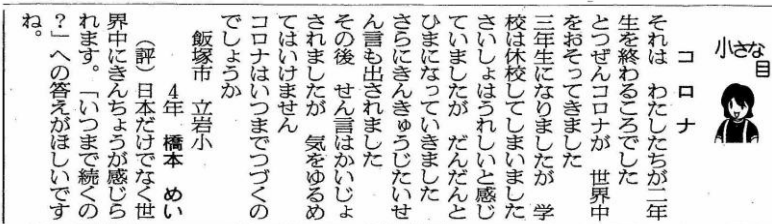 小さな目
コロナ
それは　わたしたちが二年
生を終わるころでした
とつぜんコロナが　世界中
をおそってきました
三年生になりましたが　学
校は休校してしまいました
さいしょはうれしいと感じ
ていましたが　だんだんと
ひまになっていきました
さらにきんきゅうじたいせ
ん言も出されました
その後　せん言はかいじょ
されましたが　気をゆるめ
てはいけません
コロナはいつまでつづくの
でしょうか
飯塚市　立岩小
４年　橋本　めい
（評）日本だけでなく世
界中にきんちょうが感じら
れます。「いつまで続くの
？」への答えがほしいです
ね。